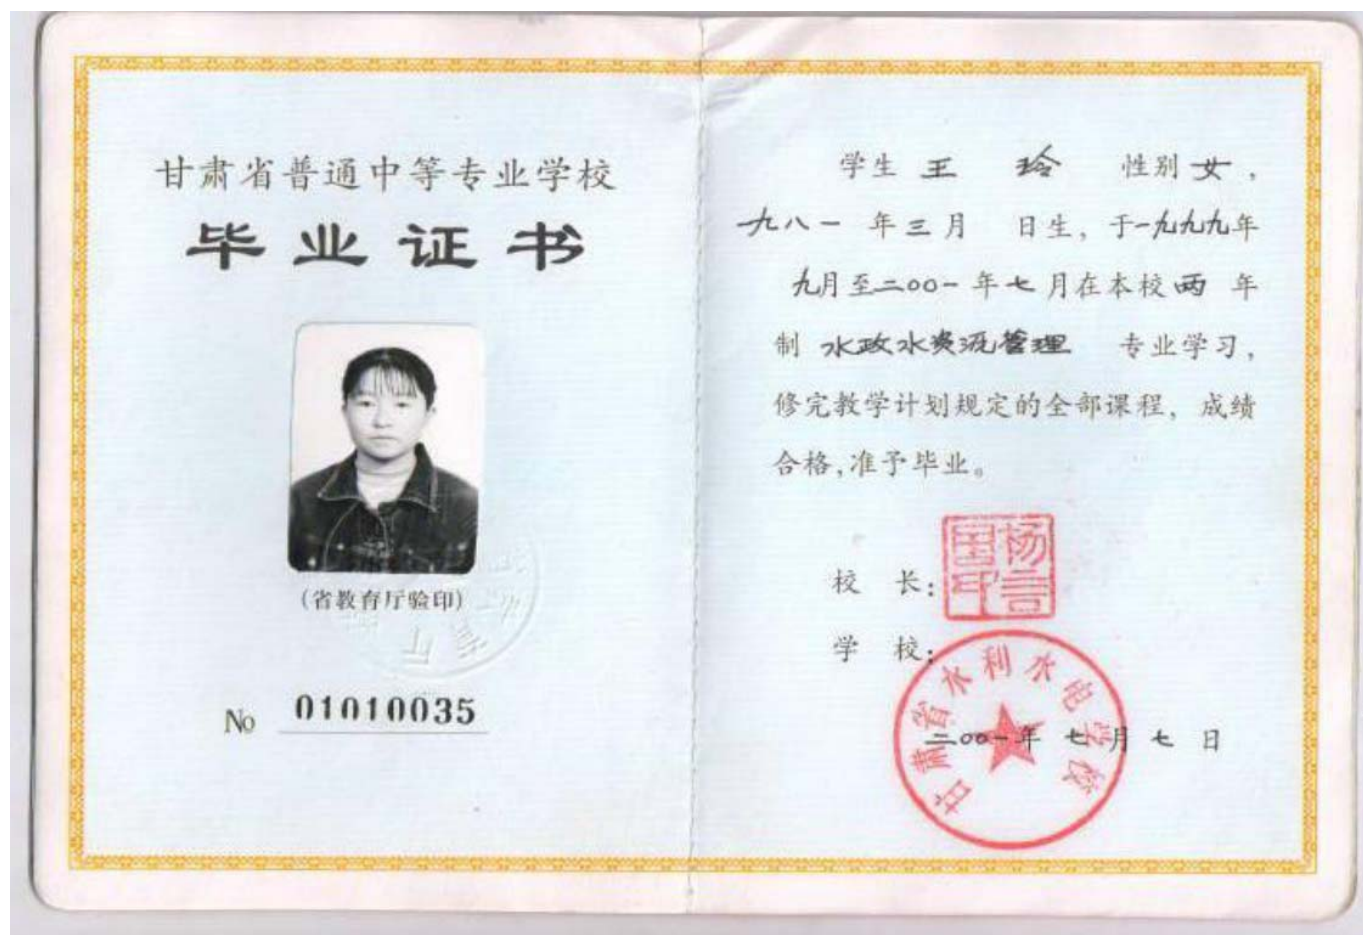 甘肃省普通中等专业学校
毕业证书
(省教育厅验印)
No 01010035
学生 王 玲 性别 女,
一九八一 年 三 月 日生, 于一九九九年
九月至二〇〇一年七月在本校两年
制 水政水资源管理 专业学习,
修完教学计划规定的全部课程, 成绩
合格,准予毕业。
校 长:
杨言国印
学 校:
甘肃省水利水电学校
二〇〇一年 七 月 七 日